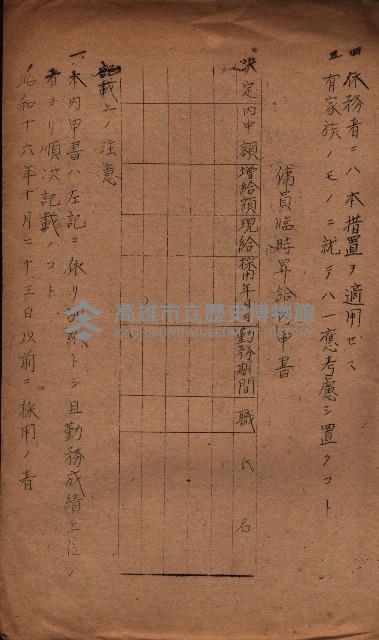 四 休務者ニハ本措置ヲ適用セズ
五 有家族ノモノニ就テハ一應考慮シ置クコト
傭員臨時昇給內申書
決定 內申額 增給額 現給 採用年月日 勤務期間 職 氏名
記載上ノ注意
一、本內申書ハ左記ニ依リ別紙トシ且勤務成績上位ノ
者ヨリ順次記載ノコト
昭和十六年十月二十三日以前ニ採用ノ者
高雄市立歷史博物館
KAOHSIUNG MUSEUM OF HISTORY